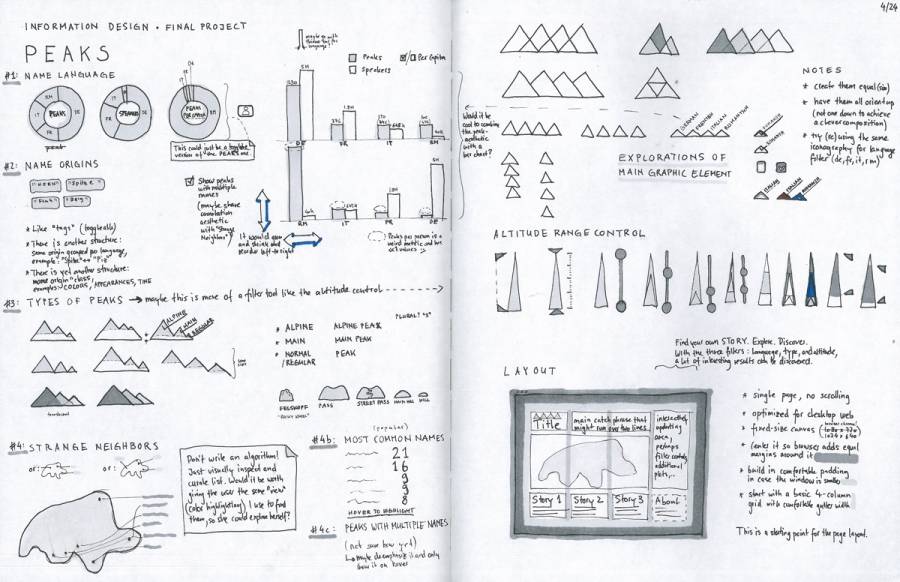 4/24
INFORMATION DESIGN • FINAL PROJECT
PEAKS
#1: NAME LANGUAGE
RM
IT
FR
DE
PEAKS
SPEAKERS
PEAKS
PER CAPITA
Peaks
Speakers
Per Capita
DE
FR
IT
RM
RM
IT
FR
DE
This could just be a toggle
version of the PEAKS one
#2: NAME ORIGINS
"HORN"
"Spitze"
"Piz"
"Berg"
* Like "tags" (toggleable)
* There is another structure:
some origin grouped per language,
example: "Spitze" ↔ "Piz"
* There is yet another structure:
name origin "class"
examples: COLORS, APPEARANCES, TIME
Show peaks
with multiple
names
(maybe share
annotation
aesthetic
with "Strange
Neighbors")
It would grow
and shrink and
reorder left-to-right
Peaks per person is a
weird metric and has
odd values
#3: TYPES OF PEAKS → maybe this is more of a filter tool like the altitude control
ALPINE
MAIN
REGULAR
PLURAL? "S"
* ALPINE ALPINE PEAK
* MAIN MAIN PEAK
* NORMAL PEAK
/REGULAR
FELSKOPF
PASS
STREET PASS
MAIN HILL
HILL
#4: STRANGE NEIGHBORS
or:
or:
Don't write an algorithm!
Just visually inspect and
curate list. Would it be worth
giving the user the same "view"
(color highlighting) I use to find
them, so s/he could explore herself?
#4b: (popular)
MOST COMMON NAMES
21
16
9
9
8
HOVER TO HIGHLIGHT
#4c: PEAKS WITH MULTIPLE NAMES
(not sure how yet)
↳ maybe deemphasize it and only
show it on hover
Would it be
cool to combine
the peak-
aesthetic
with a
bar chart?
GERMAN
FRENCH
ITALIAN
ROMANSH
EXPLORATIONS OF
MAIN GRAPHIC ELEMENT
NOTES
* create them equal(size)
* have them all orient up
(not one down to achieve
a clever composition)
* try (re)using the same
iconography for language
filter (de, fr, it, rm)
ALTITUDE RANGE CONTROL
Find your own STORY. Explore. Discover.
With the three filters: language, type, and altitude,
a lot of interesting results can be discovered.
LAYOUT
Title
main catch phrase that
might run over two lines.
interactively
updating
area,
perhaps
filter controls,
additional
plots,...
Story 1
Story 2
Story 3
About
* single page, no scrolling
* optimized for desktop web
* fixed-size canvas
* center it so browser adds equal
margins around it
* build in comfortable padding
in case the window is smaller
* start with a basic 4-column
grid with comfortable gutter width
This is a starting point for the page layout.